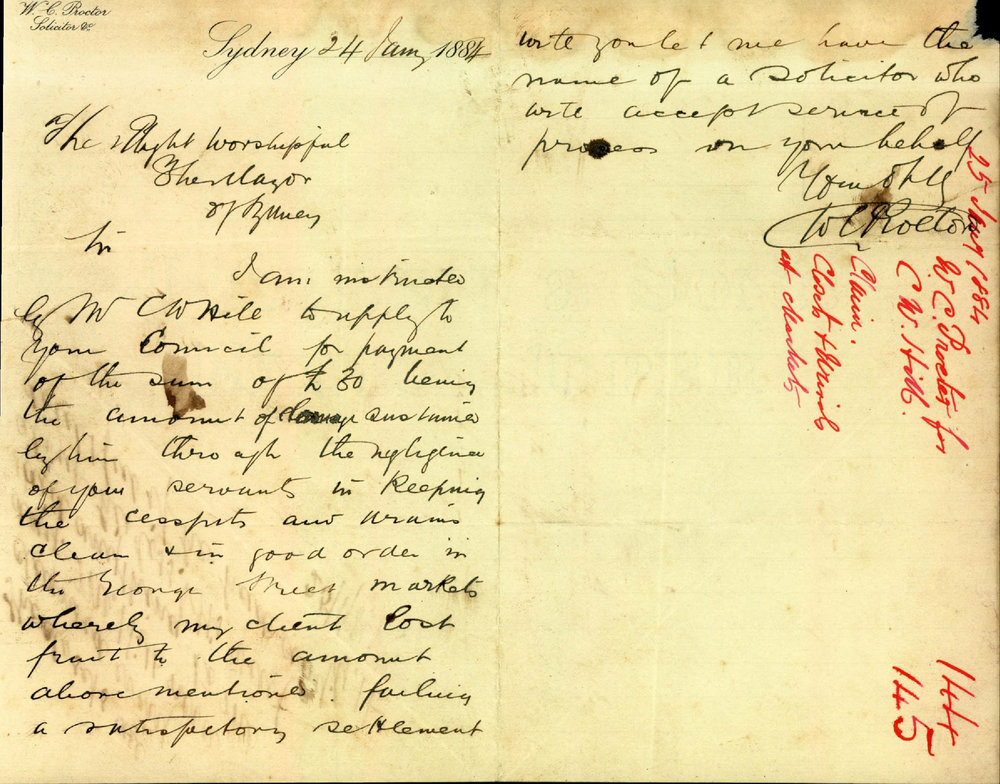 W. C. Proctor
Solicitor &c
Sydney 24 Jany 1884
The Right Worshipful
The Mayor
of Sydney
Sir
I am instructed
by Mr C W Hill to apply to
your Council for payment
of the sum of £30 being
the amount of damage sustained
by him through the negligence
of your servants in keeping
the cesspits and drains
clean & in good order in
the George Street markets
whereby my client lost
fruit to the amount
above mentioned. failing
a satisfactory settlement
will you let me have the
name of a solicitor who
will accept service of
process on your behalf
Yours obtly
W C Proctor
25 Jany 1884
W C. Procter for
C W. Hill.
Claim.
Closets & Urinals
at Markets
144
145